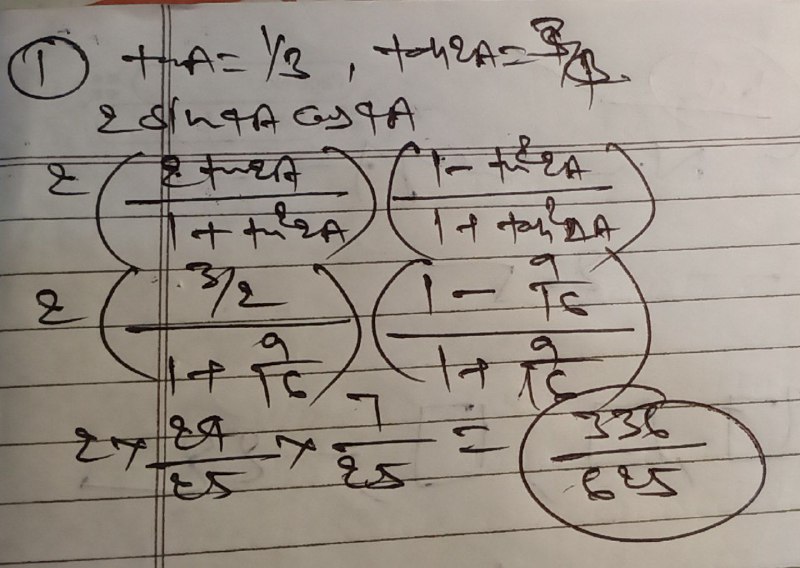 ① tanA = 1/3 , tan2A = 3/4
2 sin4A cos4A
2 (2 tan2A / 1 + tan²2A) (1 - tan²2A / 1 + tan²2A)
2 (3/2 / 1 + 9/16) (1 - 9/16 / 1 + 9/16)
2 × 24/25 × 7/25 = 336/625